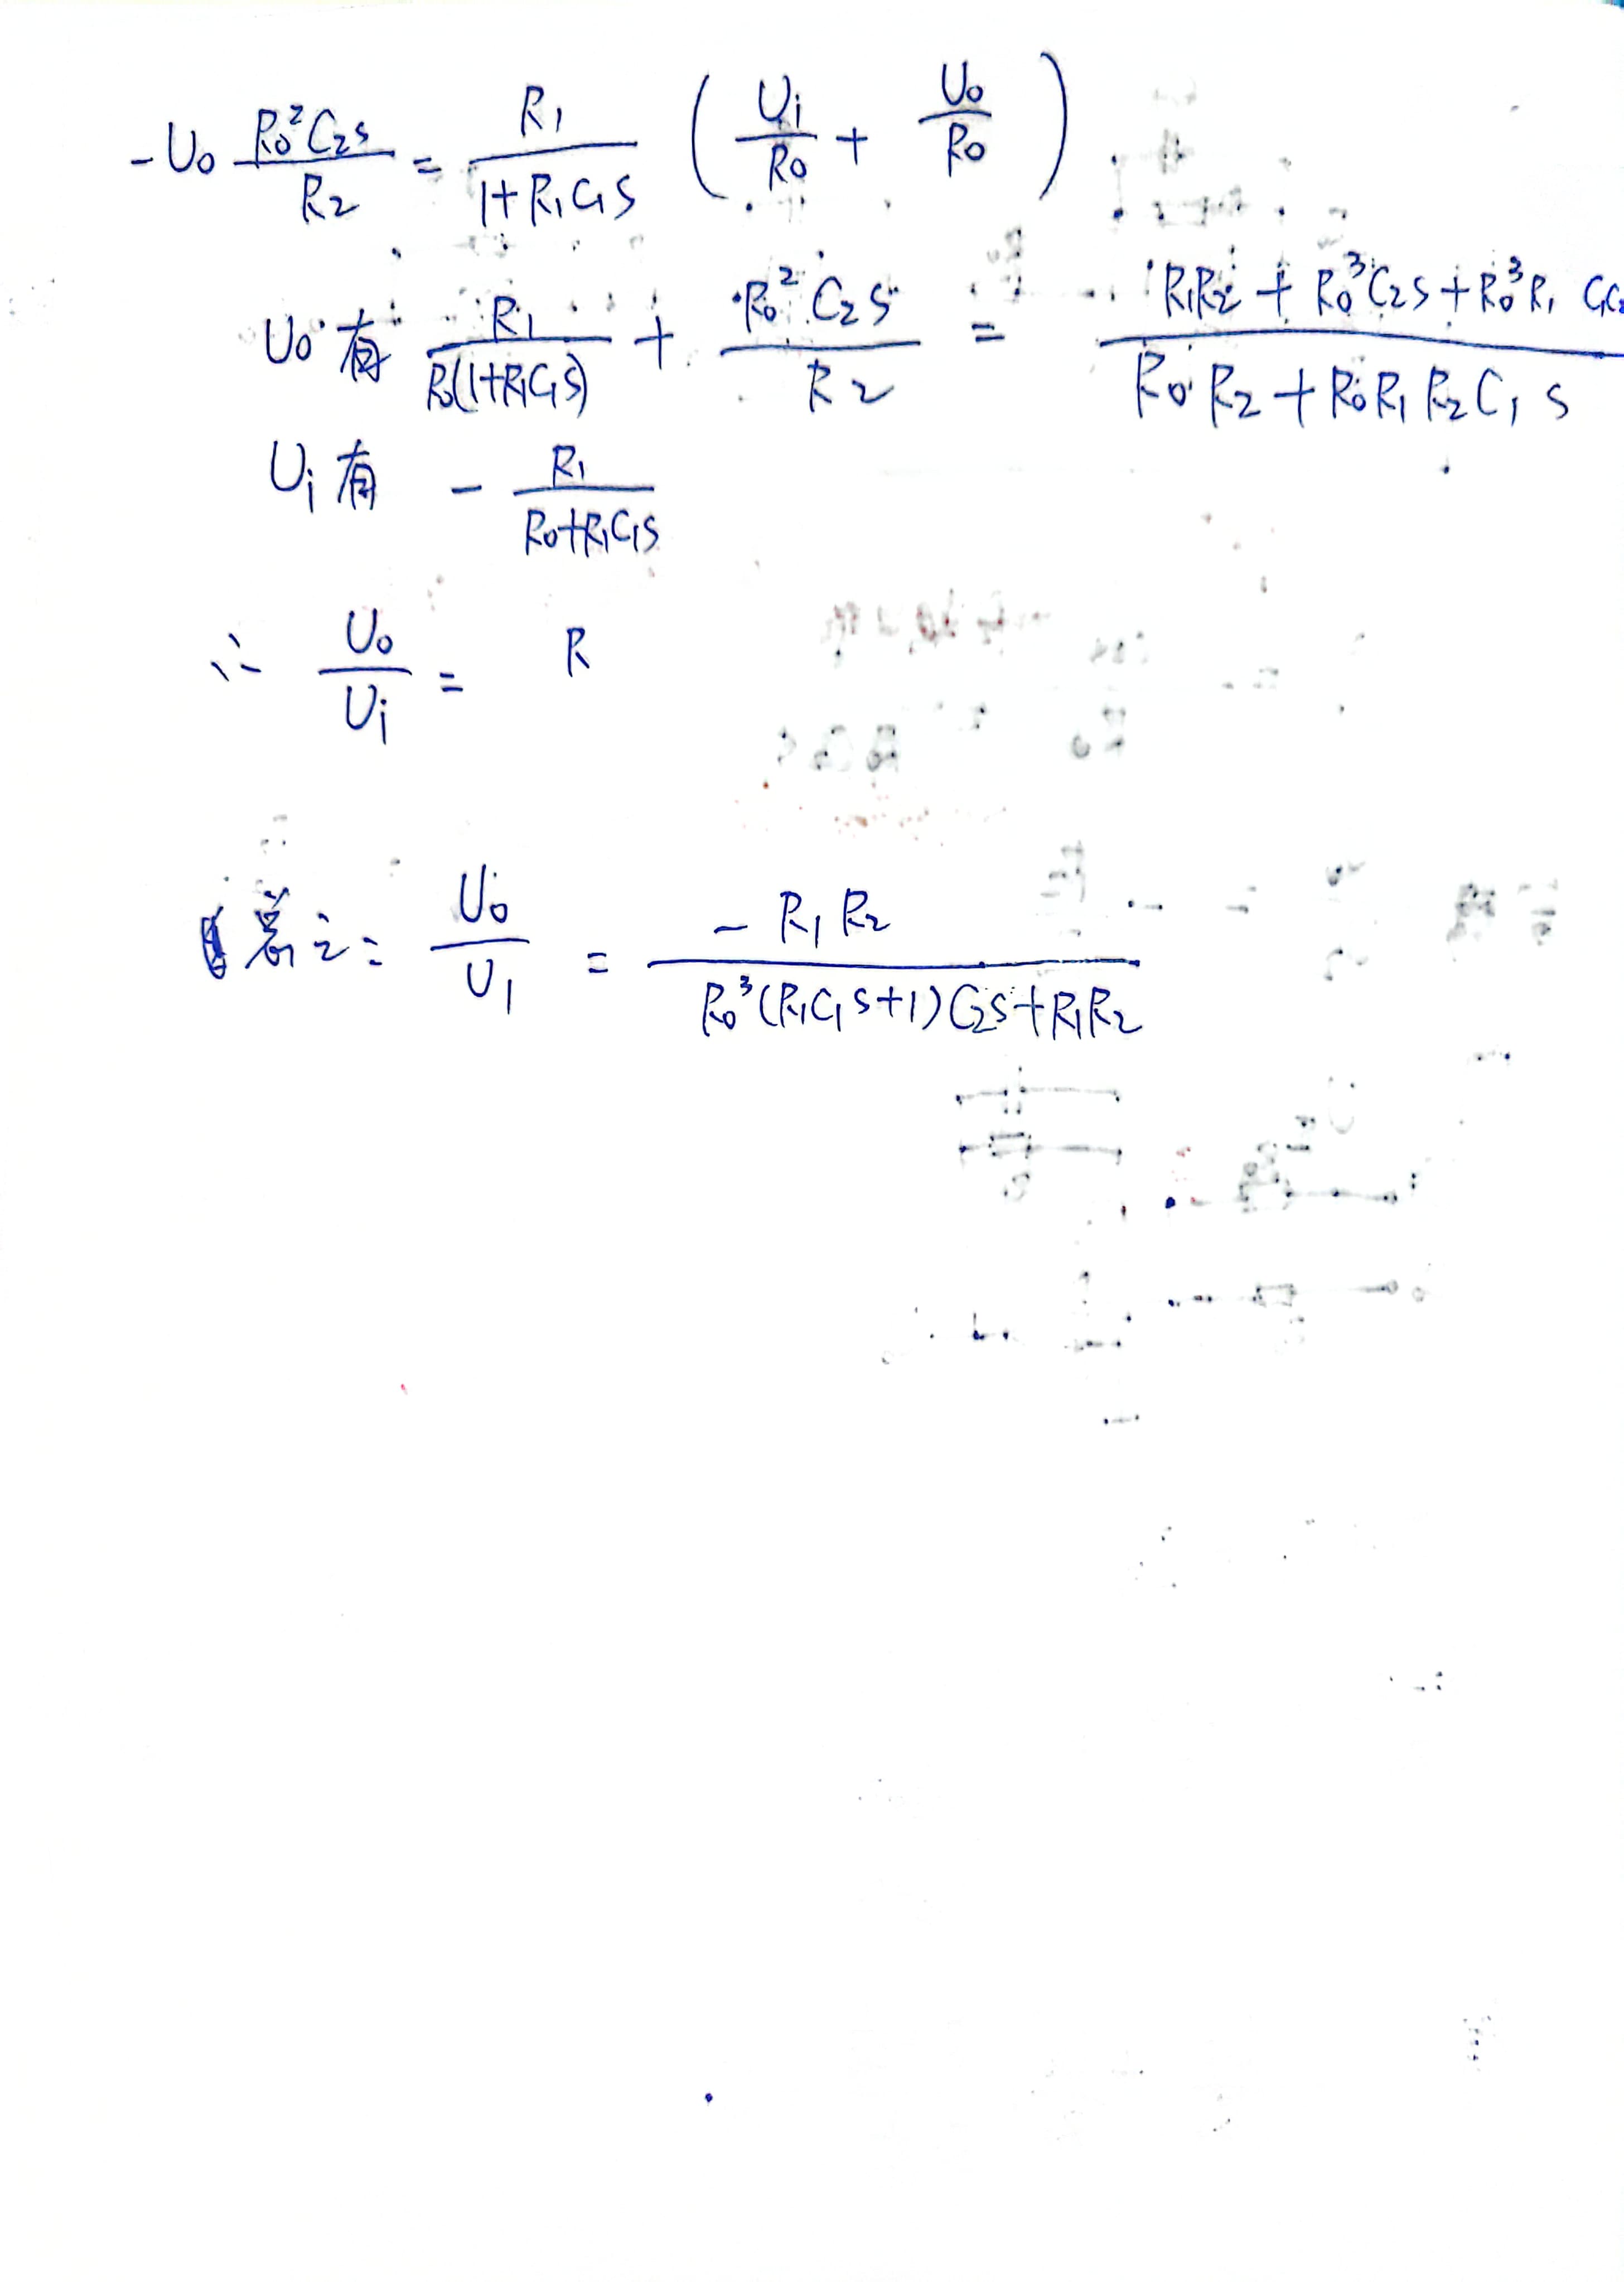 -U₀ R₀²C₂s / R₂ = R₁ / (1+R₁C₁s) ( Uᵢ/R₀ + U₀/R₀ )
U₀有 R₁ / (R₀(1+R₁C₁s)) + R₀²C₂s / R₂ = (R₁R₂ + R₀³C₂s + R₀³R₁ C₁C₂) / (R₀R₂ + R₀R₁R₂C₁s)
Uᵢ有 - R₁ / (R₀+R₁C₁s)
∴ U₀/Uᵢ = R
U₀/U₁ = -R₁R₂ / (R₀³(R₁C₁s+1)C₂s+R₁R₂)